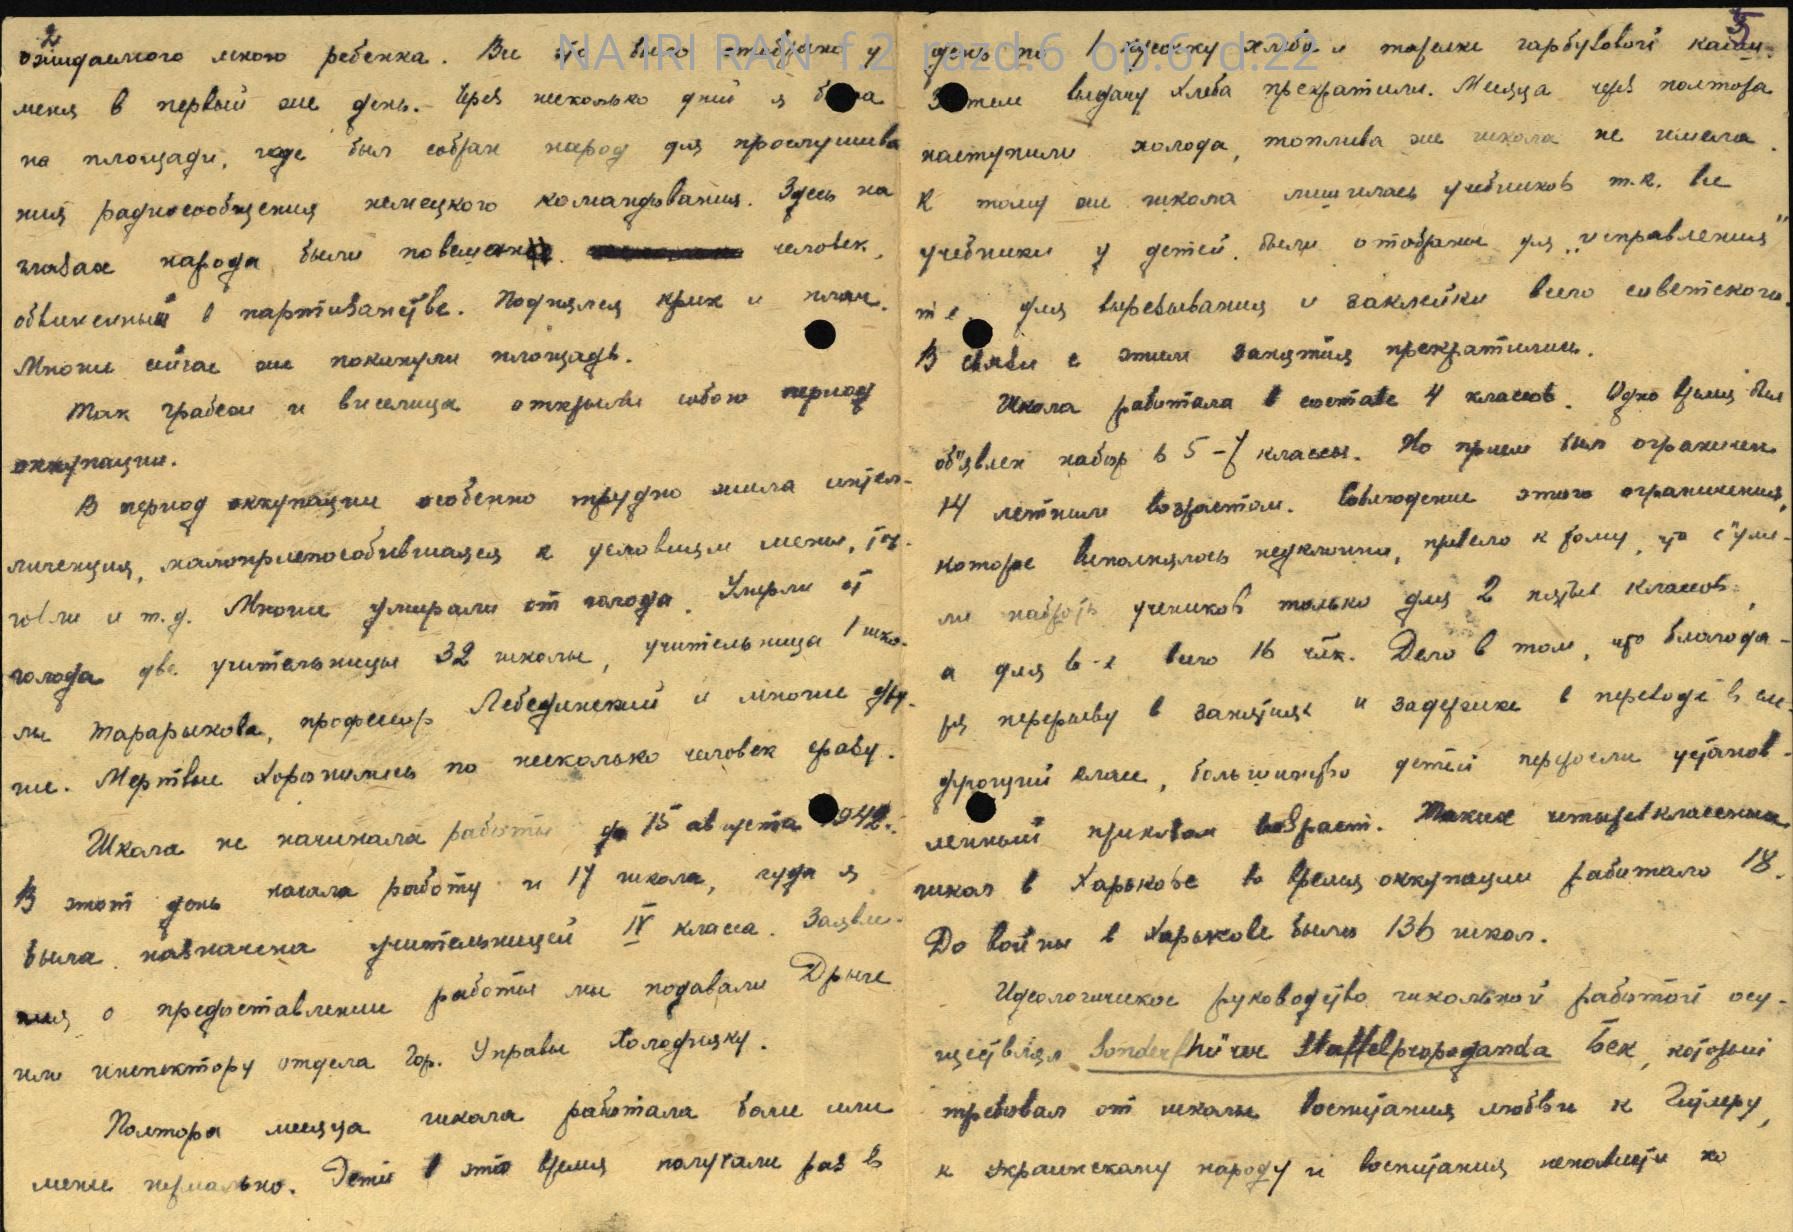 2
ожидаемого мною ребенка. Все это было отобрано у
меня в первый же день. Через несколько дней я была
на площади, где был собран народ для прослушива
ния радиосообщения немецкого командования. Здесь на
глазах народа были повешены человек,
обвиненный в партизанстве. Поднялся крик и плач.
Многие сейчас же покинули площадь.
Так грабеж и виселица открыли собою период
оккупации.
В период оккупации особенно трудно жила интел-
лигенция, малоприспособившаяся к условиям мены, тор-
говли и т.д. Многие умирали от голода. Умерли от
голода две учительницы 32 школы, учительница 1 шко-
лы Тарарыкова, профессор Лебединский и многие дру-
гие. Мертвые хоронились по несколько человек сразу.
Школа не начинала работы до 15 августа 1942.
В этот день начала работу и 17 школа, куда я
была назначена учительницей IV класса. Заявле-
ния о предоставлении работы мы подавали Дрыге
или инспектору отдела Гор. Управы Холодняку.
Полтора месяца школа работала более или
менее нормально. Дети в это время получали раз в
5
день по 1 кусочку хлеба и тарелке гарбузовой каши.
Затем выдачу хлеба прекратили. Месяца через полтора
наступили холода, топлива же школа не имела.
К тому же школа лишилась учебников т.к. все
учебники у детей были отобраны для „исправления"
т.е. для вырезывания и заклейки всего советского.
В связи с этим занятия прекратились.
Школа работала в составе 4 классов. Одно время был
об"явлен набор в 5-7 классы. Но прием был ограничен
14 летним возрастом. Соблюдение этого ограничения,
которое выполнялось неуклонно, привело к тому, что с"уме-
ли набрать учеников только для 2 пятых классов,
а для 6-х всего 16 чел. Дело в том, что благода-
ря перерыву в занятиях и задержке в переводе в сле-
дующий класс, большинство детей переросли установ-
ленный приказом возраст. Таких четырехклассных
школ в Харькове во время оккупации работало 18.
До войны в Харькове было 136 школ.
Идеологическое руководство школьной работой осу-
ществлял Sonderführer Staffelpropoganda Бек, который
требовал от школы воспитания любви к Гитлеру,
к украинскому народу и воспитания ненависти ко
NA IRI RAN f.2 razd.6 op.6 d.22